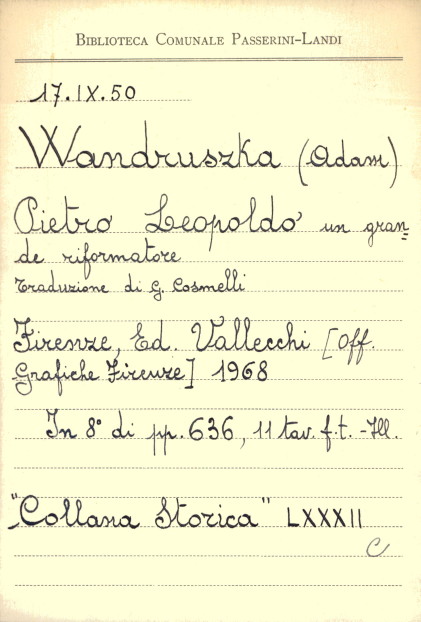 BIBLIOTECA COMUNALE PASSERINI-LANDI
17.IX.50
Wandruszka (Adam)
Pietro Leopoldo un gran=
de riformatore
Traduzione di G. Cosmelli
Firenze, Ed. Vallecchi [Off.
Grafiche Firenze] 1968
In 8° di pp. 636, 11 tav. f.t. - Ill.
"Collana Storica" LXXXII
C